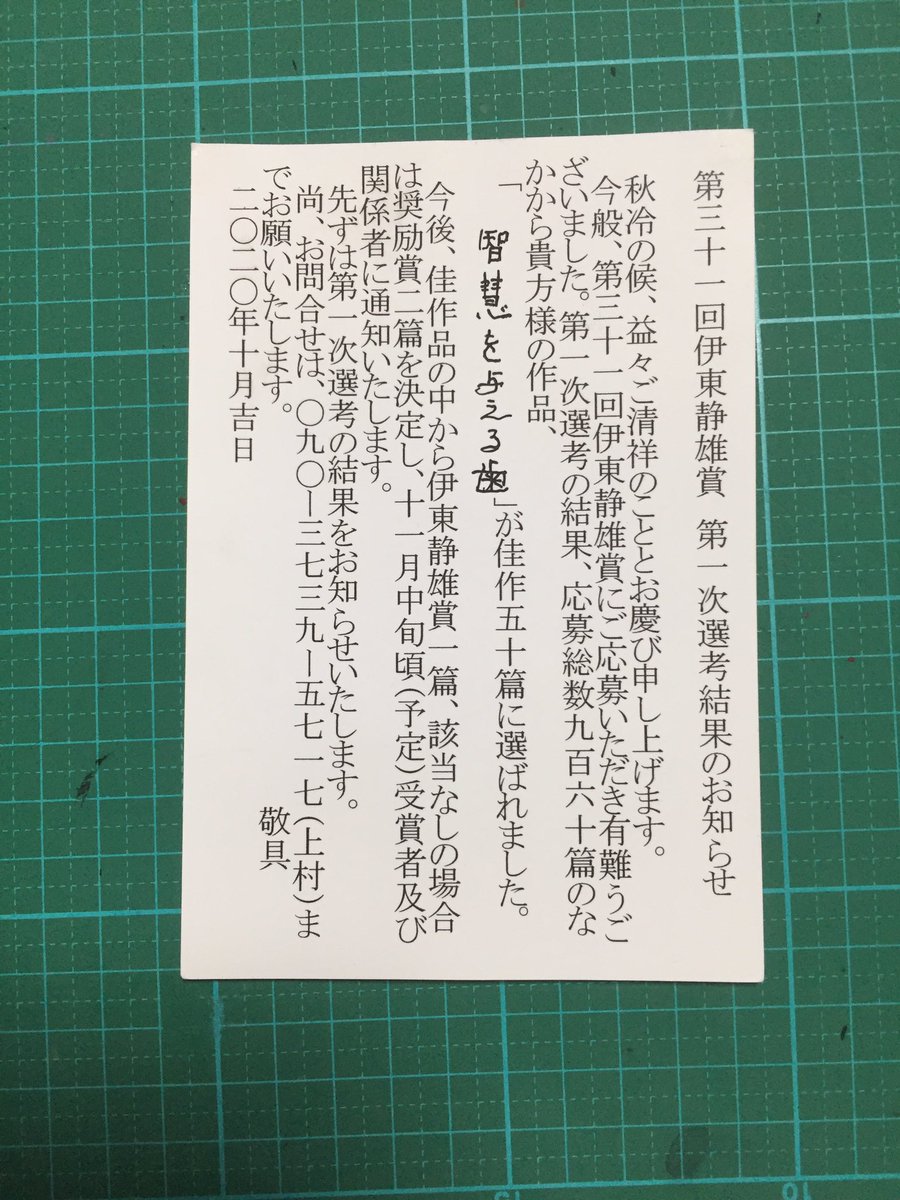 第三十一回伊東静雄賞　第一次選考結果のお知らせ
秋冷の候、益々ご清祥のこととお慶び申し上げます。
今般、第三十一回伊東静雄賞にご応募いただき有難うご
ざいました。第一次選考の結果、応募総数九百六十篇のな
かから貴方様の作品、
「智慧を与える歯」が佳作五十篇に選ばれました。
今後、佳作品の中から伊東静雄賞一篇、該当なしの場合
は奨励賞二篇を決定し、十一月中旬頃(予定)受賞者及び
関係者に通知いたします。
先ずは第一次選考の結果をお知らせいたします。
尚、お問合せは、〇九〇ー三七三九ー五七一七(上村)ま
でお願いいたします。
敬具
二〇二〇年十月吉日
15
16